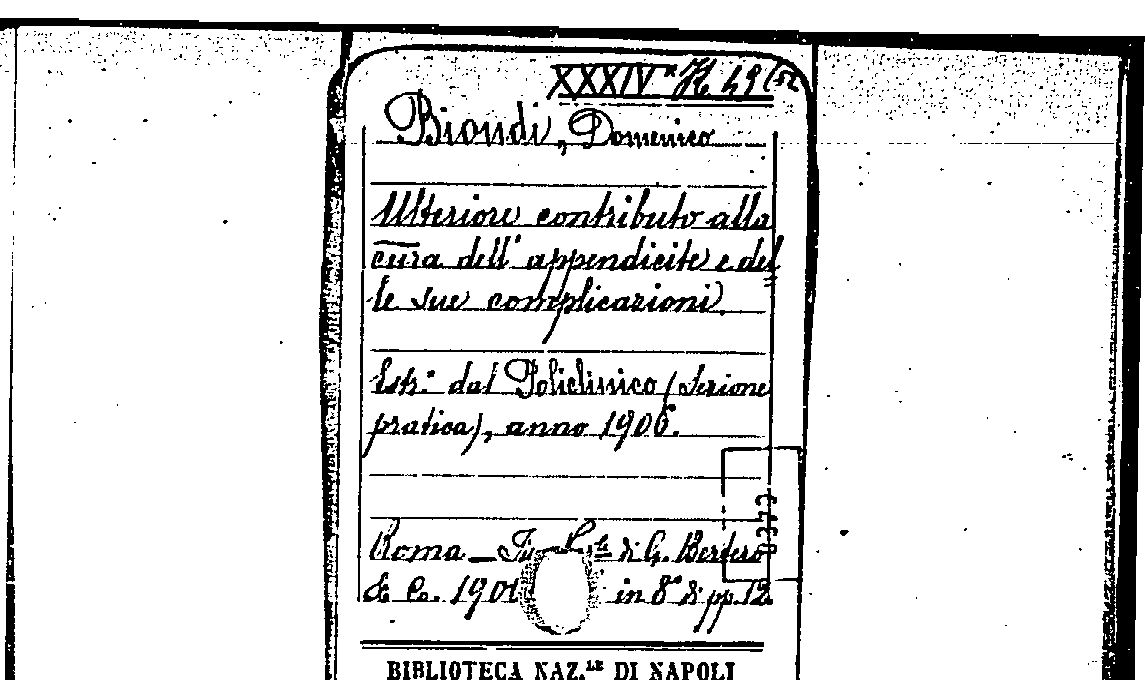 XXXIV* H 49 (52
Biondi, Domenico
Ulteriore contributo alla
cura dell'appendicite e del
le sue complicazioni.
Estr.° dal Policlinico (Sezione
pratica), anno 1906.
Roma _ di G. Bertero
& Co. in 8° pp. 12.
BIBLIOTECA NAZ.LE DI NAPOLI